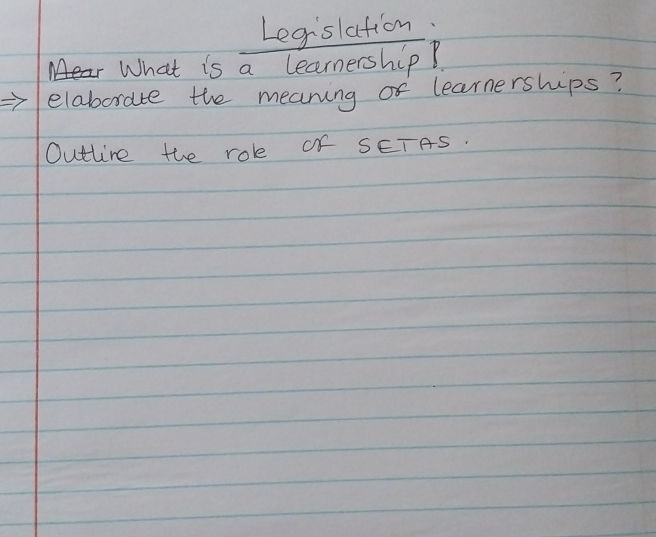 Legislation.
Mear What is a learnership?
⇒ elaborate the meaning of learnerships?
Outline the role of SETAS.